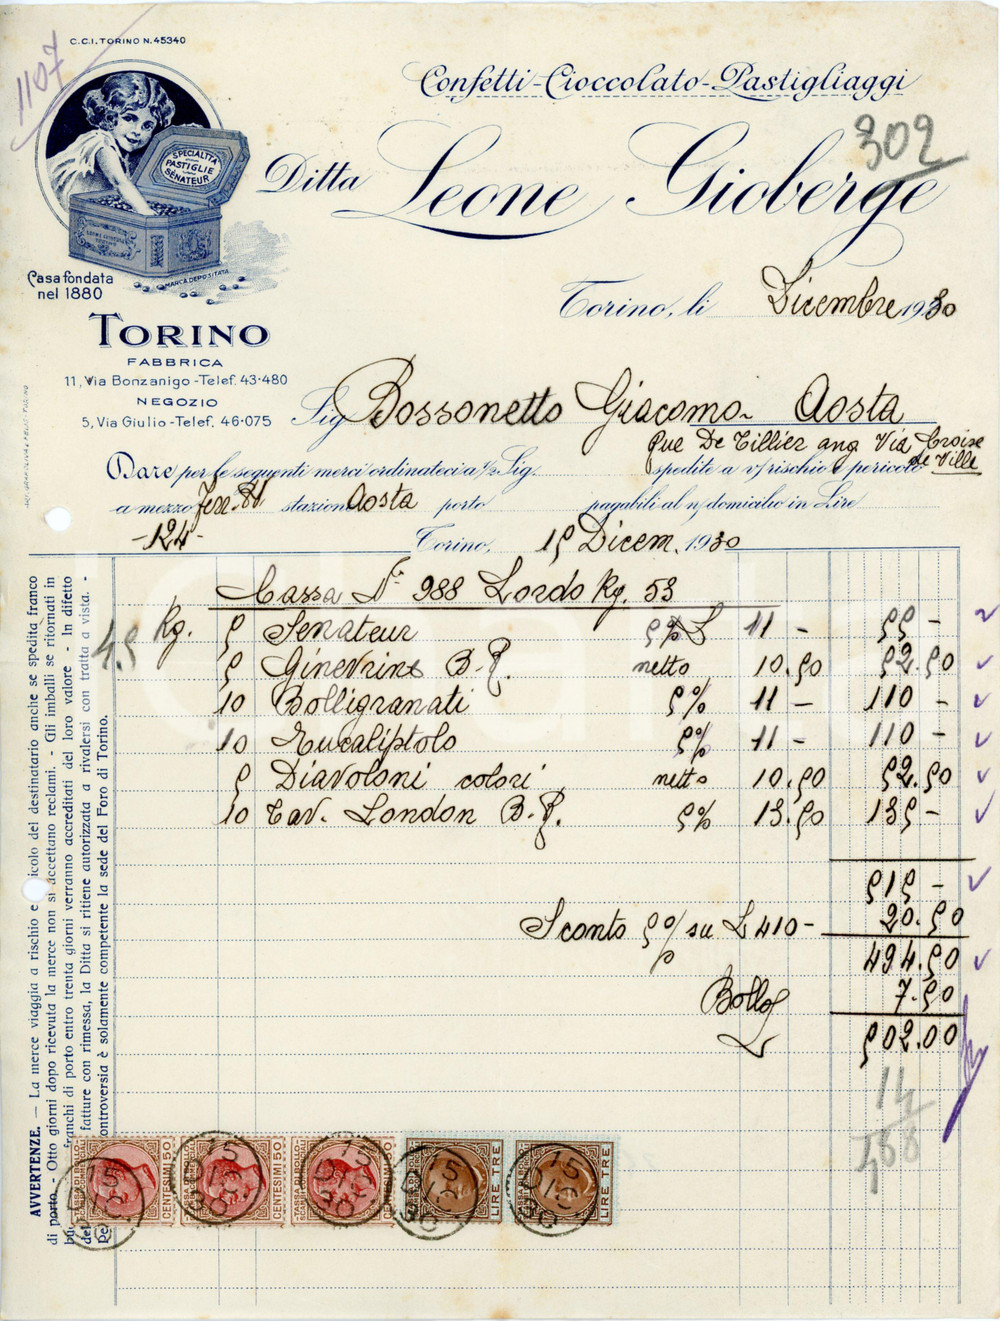 C.C.I. TORINO N. 45340
1107
Confetti-Cioccolato-Pastigliaggi
302
Ditta Leone Gioberge
SPECIALITÀ
PASTIGLIE
SÉNATEUR
MARCA DEPOSITATA
Casa fondata
nel 1880
Torino, li Dicembre 1930
TORINO
FABBRICA
11, Via Bonzanigo - Telef. 43-480
NEGOZIO
5, Via Giulio - Telef. 46-075
Sig Bossonetto Giacomo - Aosta
Rue De Tillier ang Via Croise
de Ville
Dare per le seguenti merci ordinateci a 1/2 Sig. spedite a v/ rischio e pericolo
a mezzo Ferr. stazione Aosta porto pagabili al n/ domicilio in Lire
-124- Torino, 15 Dicem. 1930
Cassa N° 988 Lordo Kg. 53
45 Kg. 5 Senateur 5% 11 - 55 -
5 Ginevrine B.P. netto 10.50 52.50
10 Bolligranati 5% 11 - 110 -
10 Eucaliptolo 5% 11 - 110 -
5 Diavoloni colori netto 10.50 52.50
10 Tav. London B.P. 5% 13.50 135 -
515 -
Sconto 5% su L 410 - 20.50
494.50
Bollo 7.50
502.00
14
488
AVVERTENZE. — La merce viaggia a rischio e icolo del destinatario anche se spedita franco
di porto. - Otto giorni dopo ricevuta la merce non si accettano reclami. - Gli imballi se ritornati in
franchi di porto entro trenta giorni verranno accreditati del loro valore - In difetto
fatture con rimessa, la Ditta si ritiene autorizzata a rivalersi con tratta a vista. -
ontroversia è solamente competente la sede del Foro di Torino.
CENTESIMI 50
CENTESIMI 50
CENTESIMI 50
LIRE TRE
LIRE TRE
15 DIC 30
15 DIC 30
15 DIC 30
15 DIC 30
15 DIC 30